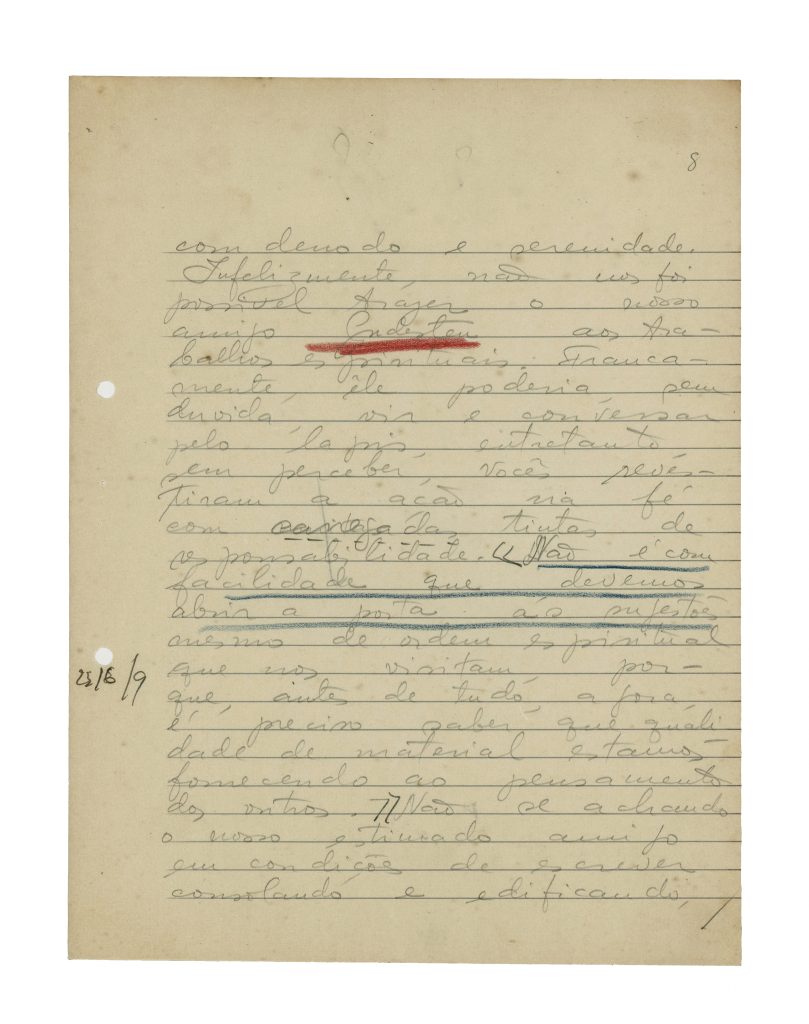 8
com denodo e serenidade.
Infelizmente, não nos foi
possível trazer o nosso
amigo aos tra-
balhos espirituais. Franca-
mente, êle poderia, sem
duvida, vir e conversar
pelo lapis, entretanto
sem perceber, vocês reves-
tiram a acão na fé
com carregadas tintas de
responsabilidade. << Não é com
facilidade que devemos
abrir a porta ás sujestões
mesmo de ordem espiritual
que nos visitam, por-
que, antes de tudo, agora
é preciso saber que quali
dade de material estamos
fornecendo ao pensamento
dos outros. >> Não se achando
o nosso estimado amigo
em condições de escrever
consolando e edificando,